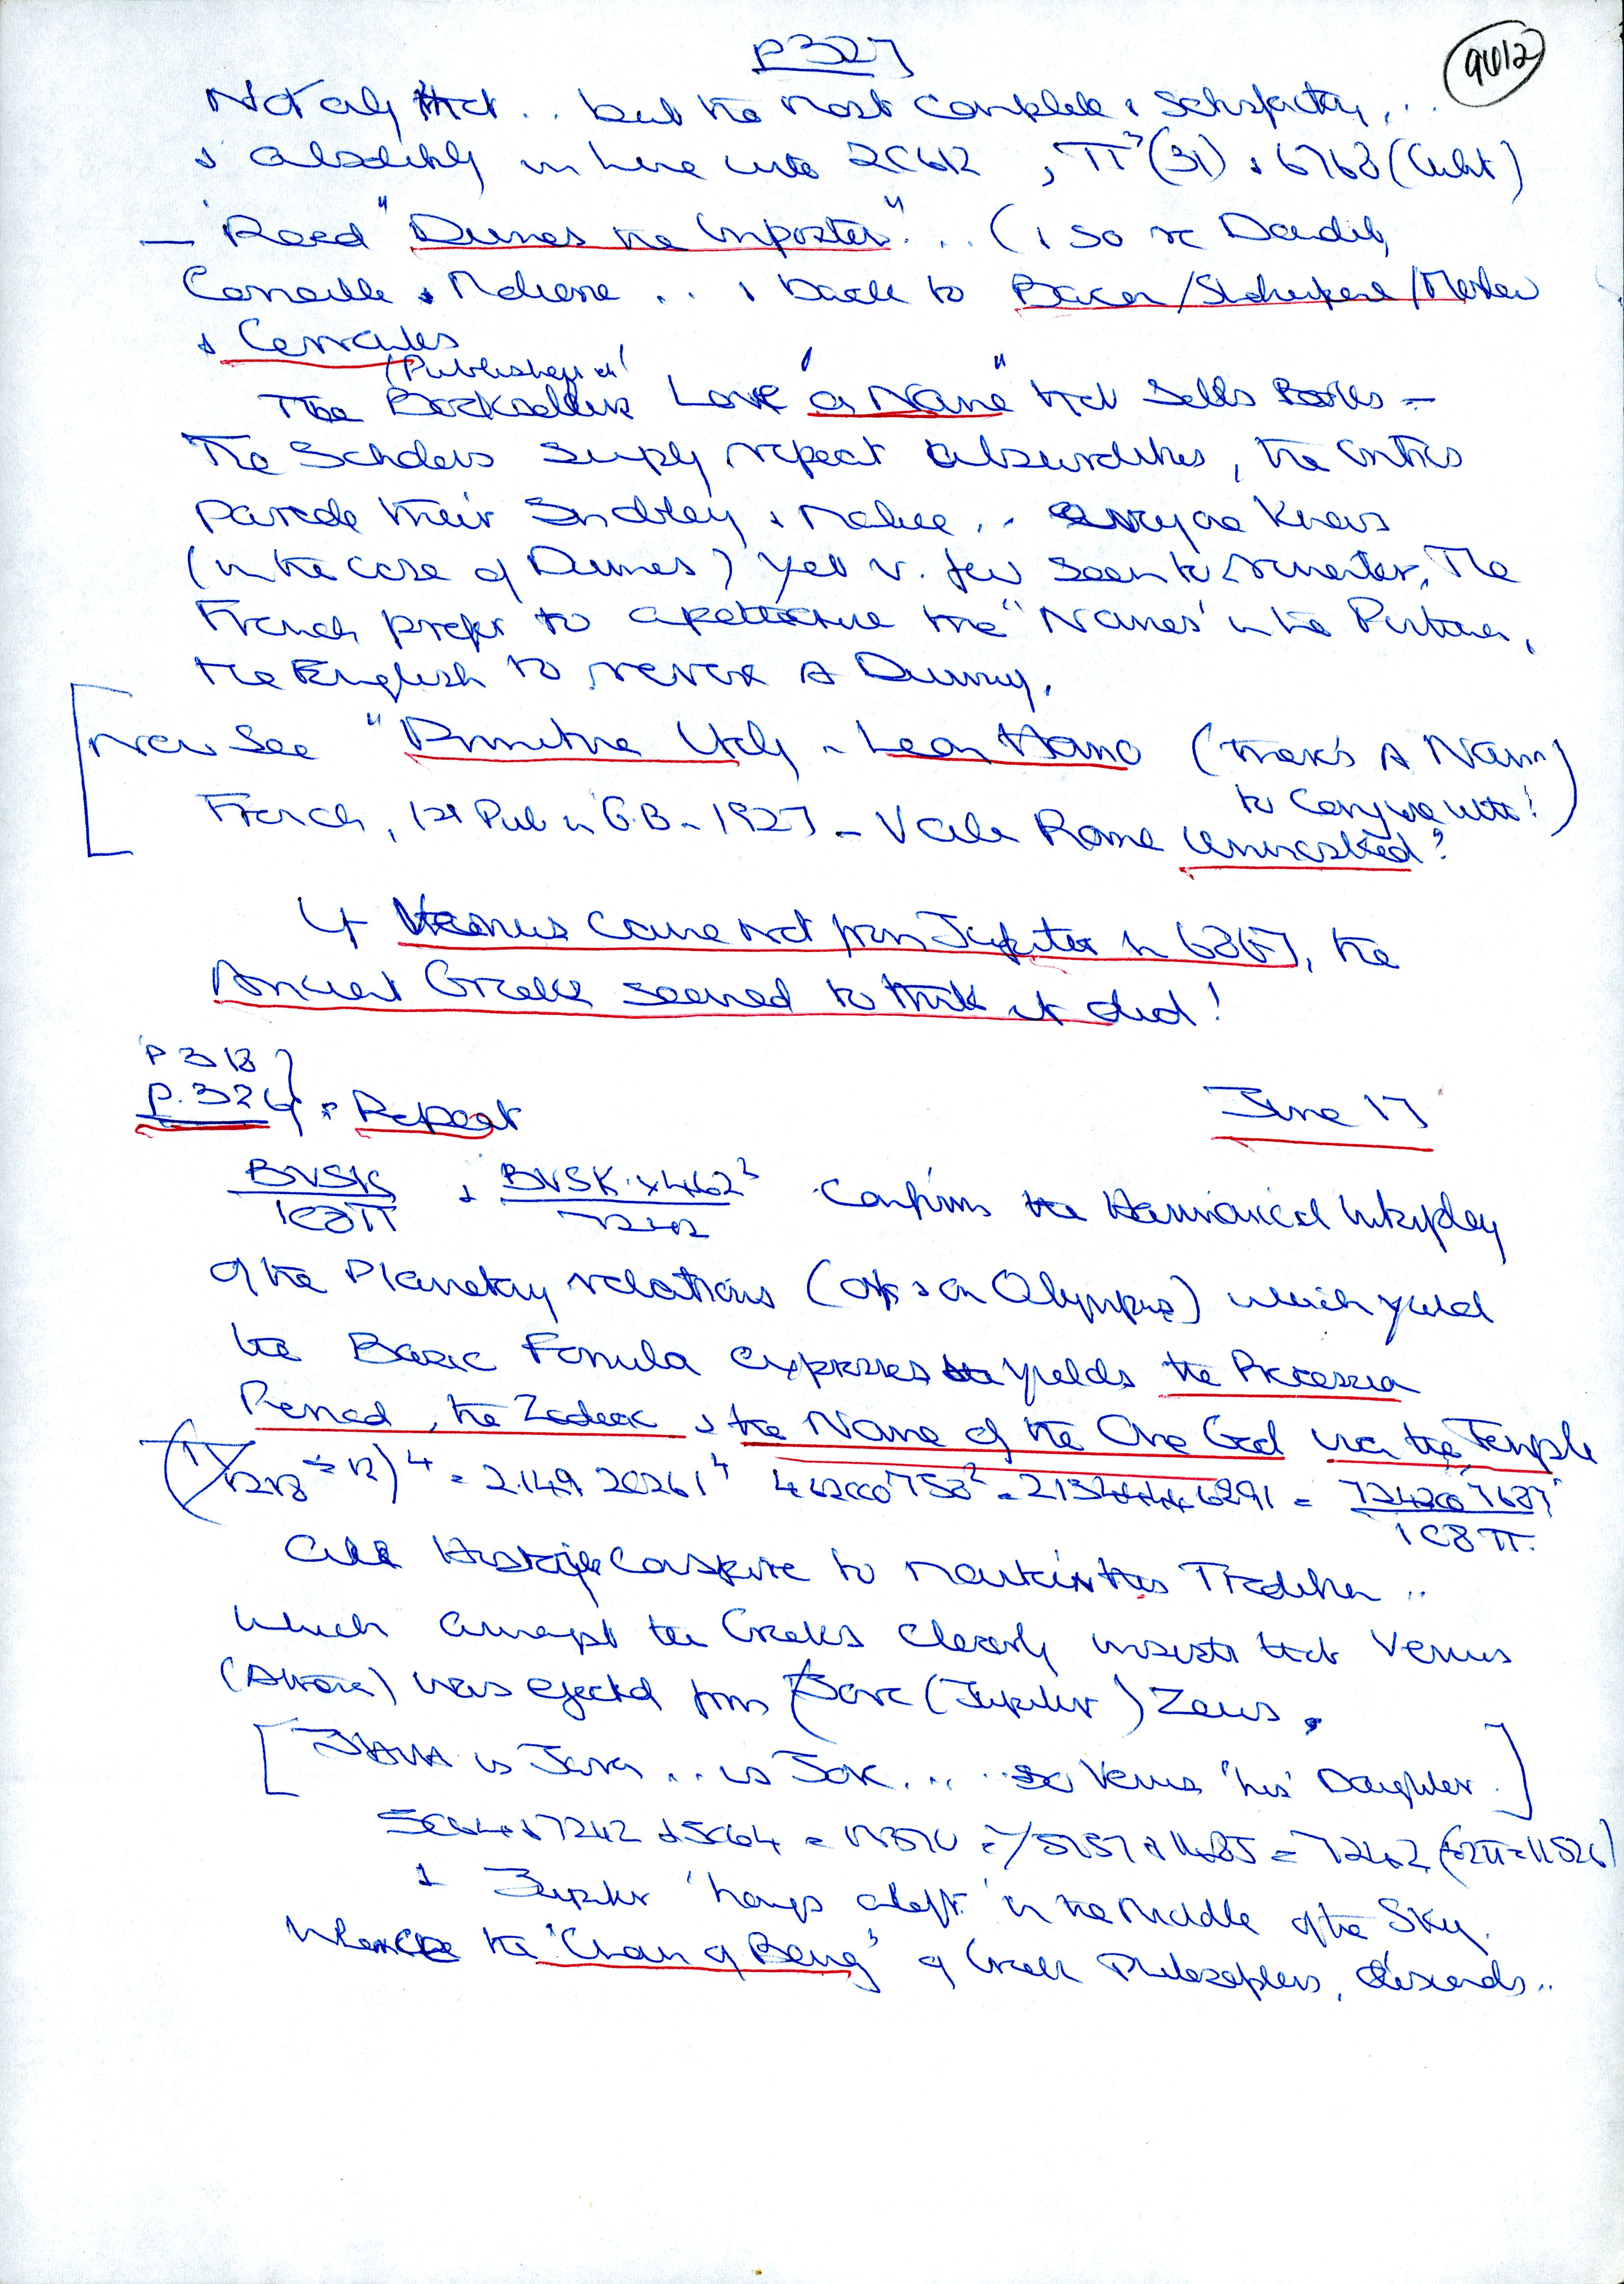 P327
9612
Not only that .. but the most complete & satisfactory, ..
& absolutely in line with 20612, π³(31) & 6768 (Cubit)
— Read "Dumas the Imposter" .. (& so re Daudet,
Corneille & Moliere .. & back to Bacon/Shakespere/Marlow
& Cervantes
(Publishers
The Booksellers Love 'a Name" that Sells Books –
The Scholars simply repeat absurdities, the critics
parade their Snobbery & malice .. everyone knows
(in the case of Dumas) yet v. few seem to remember, The
French prefer to the "Names' in the
the English to revere A Dummy.
Now See "Primitive Italy – Leon Homo (there's A Name
to conjure with!)
French, 1st Pub in G.B – 1927 – Vale Rome Unmasked?
If Venus came not from Jupiter in 6867, the
Ancient Greeks seemed to think it did!
P318
P.324 : Repeat
June 17
BVSK/108π & BVSK x 462²/7242 Confirms the Harmonical Interplay
of the Planetary relations (as on Olympus) which yield
the Basic Formula expresses yields the Precession
Period, the Zodiac & the Name of the One God via the Temple
÷ 12)⁴ = 2.149 20261⁴ 462000758² = 2134446291 = /108π.
All Historys Conspire to maintain this Tradition ..
which amongst the Greeks clearly insists that Venus
was ejected from Jove (Jupiter) Zeus.
[ is Java .. is Jove .... so Venus 'his' Daughter.]
5064 & 7242 & 5064 = = 7242
& Jupiter 'hangs aloft' in the Middle of the Sky.
Whence the 'Chain of Being' of Greek Philosophers, descends..